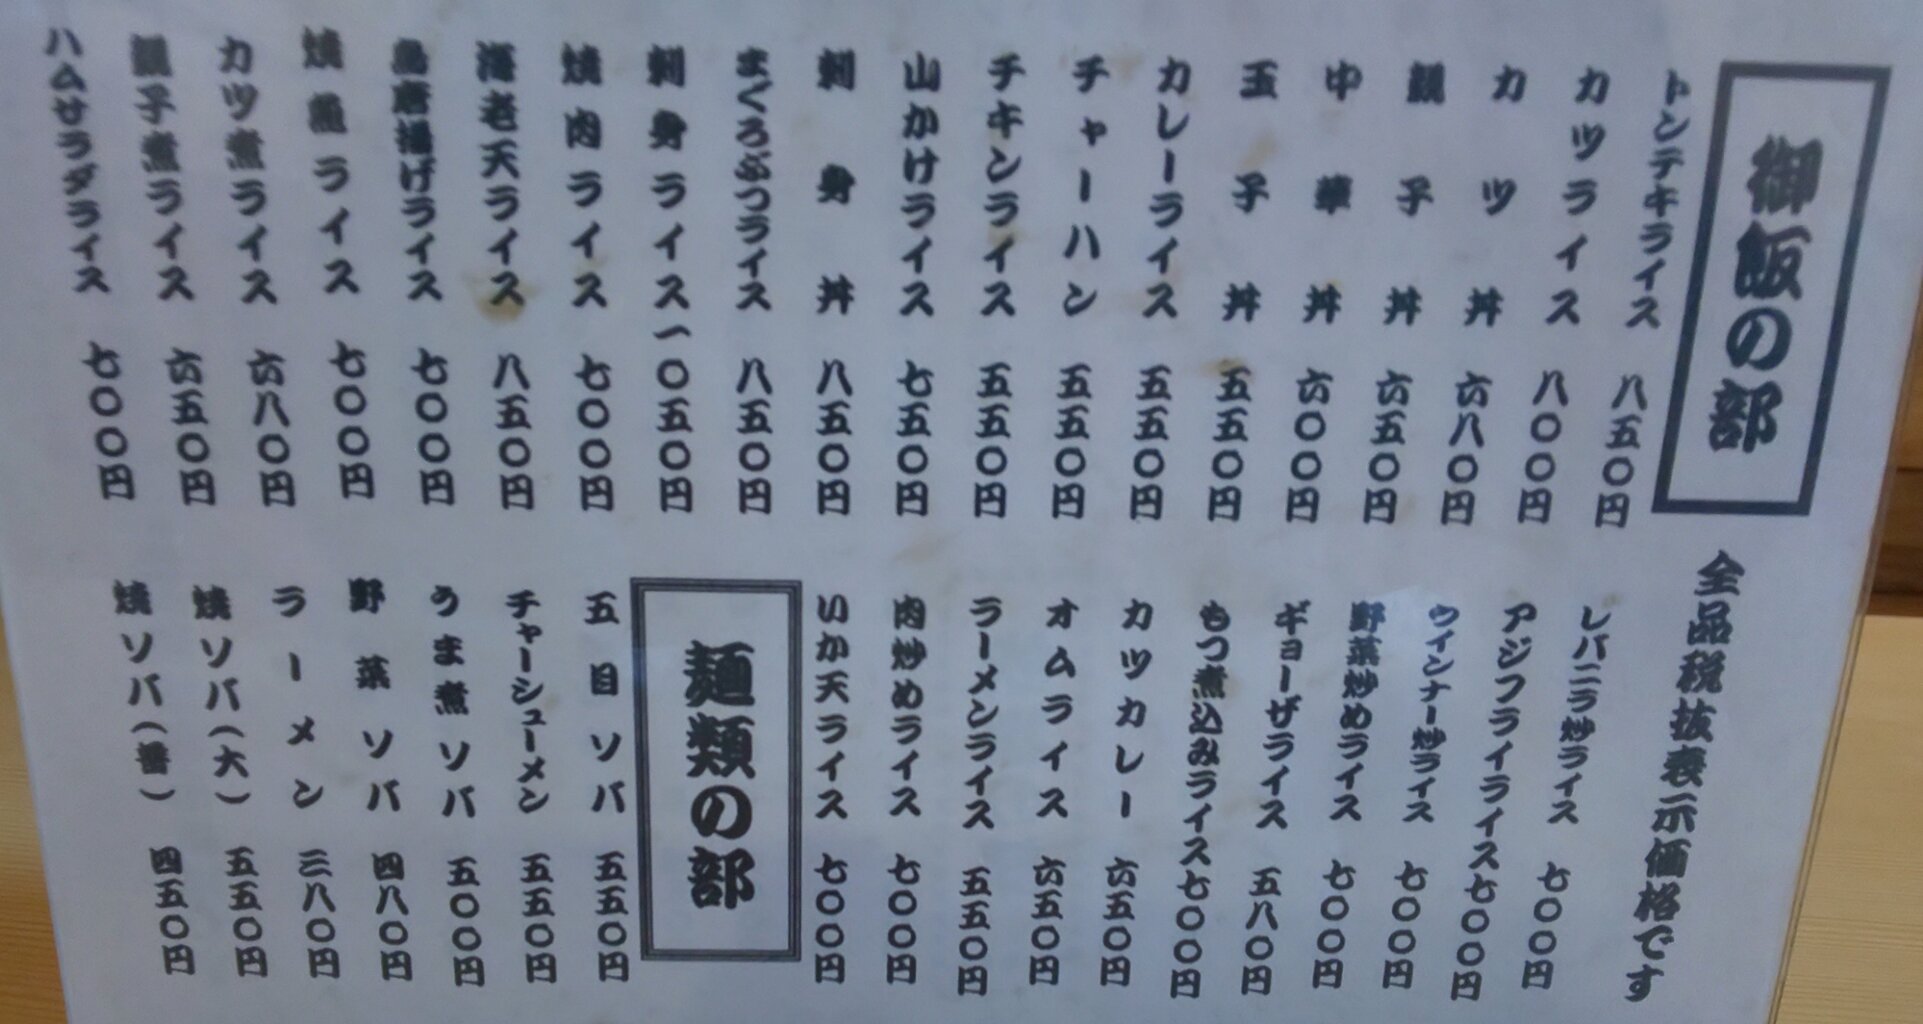 御飯の部
全品税抜表示価格です
トンテキライス 八五〇円
カツライス 八〇〇円
カツ丼 六八〇円
親子丼 六五〇円
中華丼 六〇〇円
玉子丼 五五〇円
カレーライス 五五〇円
チャーハン 五五〇円
チキンライス 五五〇円
山かけライス 七五〇円
刺身丼 八五〇円
まぐろぶつライス 八五〇円
刺身ライス 一〇五〇円
焼肉ライス 七〇〇円
海老天ライス 八五〇円
鳥唐揚げライス 七〇〇円
焼魚ライス 七〇〇円
カツ煮ライス 六八〇円
親子煮ライス 六五〇円
ハムサラダライス 七〇〇円
レバニラ炒ライス 七〇〇円
アジフライライス 七〇〇円
ウインナー炒ライス 七〇〇円
野菜炒めライス 七〇〇円
ギョーザライス 五八〇円
もつ煮込みライス 七〇〇円
カツカレー 六五〇円
オムライス 六五〇円
ラーメンライス 五五〇円
肉炒めライス 七〇〇円
いか天ライス 七〇〇円
麺類の部
五目ソバ 五五〇円
チャーシューメン 五五〇円
うま煮ソバ 五〇〇円
野菜ソバ 四八〇円
ラーメン 三八〇円
焼ソバ(大) 五五〇円
焼ソバ(普) 四五〇円